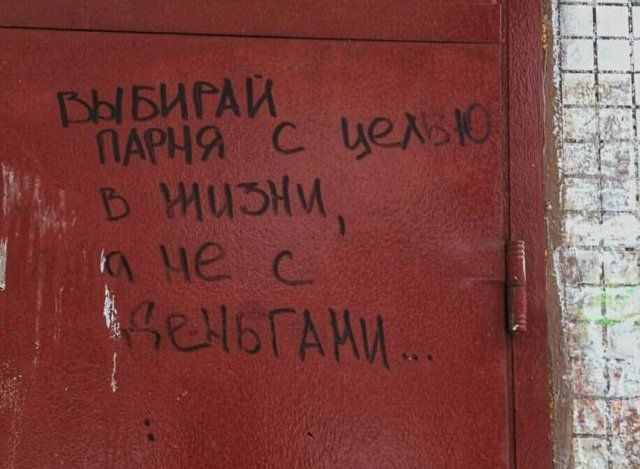 ВЫБИРАЙ
ПАРНЯ С ЦЕЛЬЮ
В ЖИЗНИ,
а не с
ДЕНЬГАМИ...